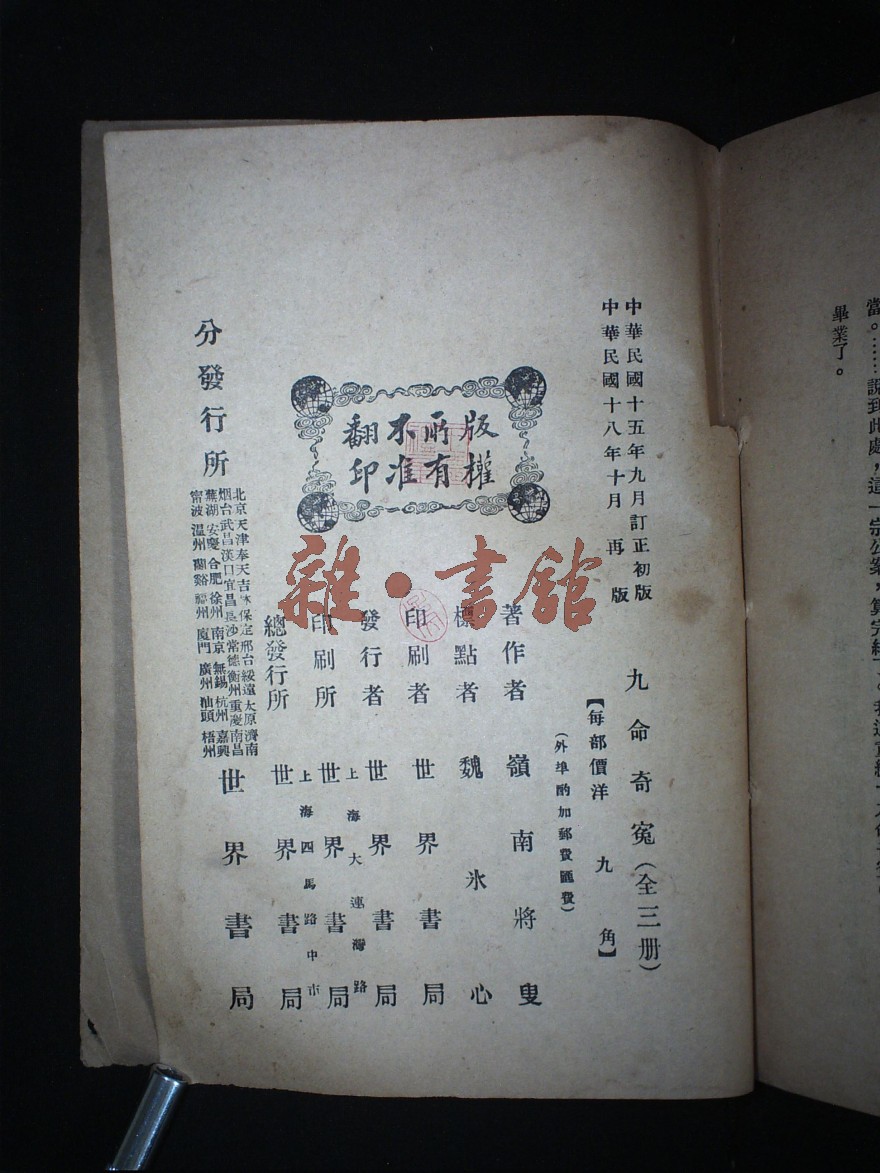 當。……說到此處，這一宗公案，算完結了。
畢業了。
中華民國十五年九月訂正初版
中華民國十八年十月再版
九命奇冤（全三册）
【每部價洋九角】
（外埠酌加郵費匯費）
版權所有
不准翻印
著作者 嶺南將叟
標點者 魏冰心
印刷者 世界書局
發行者 世界書局
印刷所 上海大連灣路 世界書局
總發行所 上海四馬路中市 世界書局
分發行所
北京天津奉天吉林保定邢台綏遠太原濟南
烟台武昌漢口宜昌長沙常德衡州重慶南昌
蕪湖安慶合肥徐州南京無錫杭州嘉興
甯波温州蘭谿福州廈門廣州汕頭梧州
世界書局
雜·書館